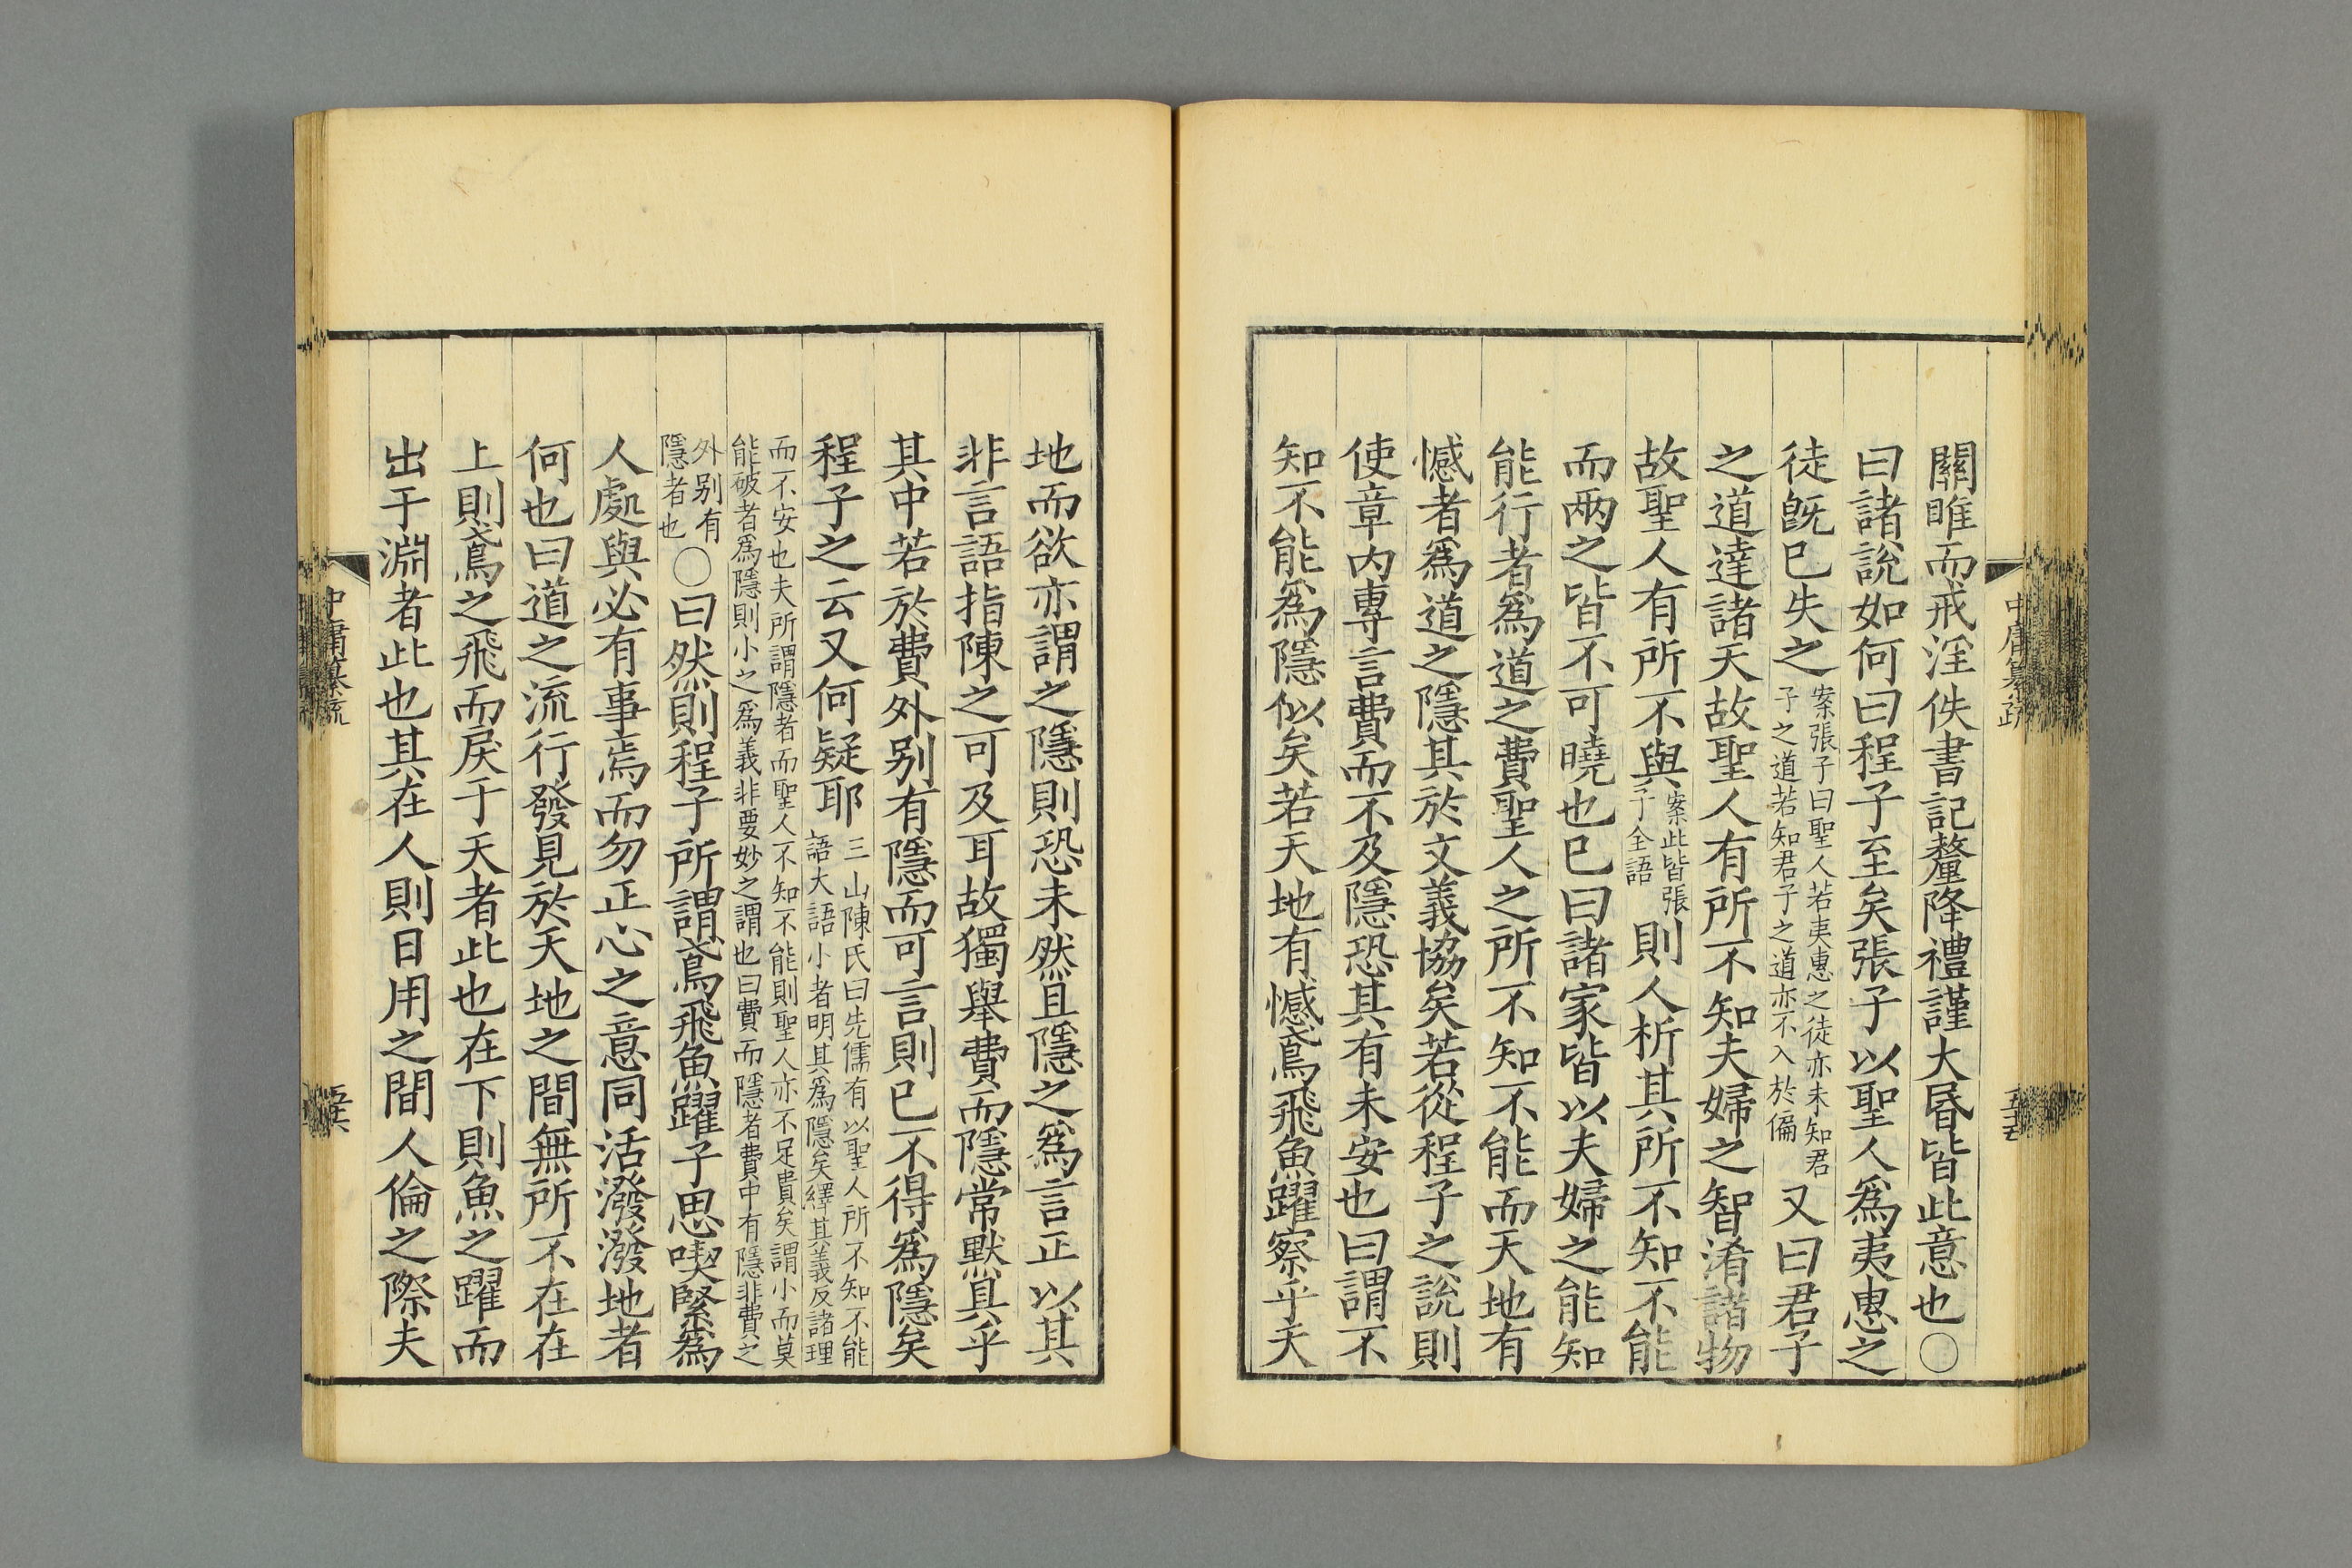 關雎而戒淫佚書記釐降禮謹大昏皆此意也〇
曰諸說如何曰程子至矣張子以聖人爲夷惠之
徒旣已失之案張子曰聖人若夷惠之徒亦未知君子之道若知君子之道亦不入於偏又曰君子
之道達諸天故聖人有所不知夫婦之智淆諸物
故聖人有所不與案此皆張子全語則人析其所不知不能
而兩之皆不可曉也已曰諸家皆以夫婦之能知
能行者爲道之費聖人之所不知不能而天地有
憾者爲道之隱其於文義協矣若從程子之說則
使章內專言費而不及隱恐其有未安也曰謂不
知不能爲隱似矣若天地有憾鳶飛魚躍察乎天
地而欲亦謂之隱則恐未然且隱之爲言正以其
非言語指陳之可及耳故獨舉費而隱常默具乎
其中若於費外別有隱而可言則已不得爲隱矣
程子之云又何疑耶三山陳氏曰先儒有以聖人所不知不能語大語小者明其爲隱矣繹其義反諸理
而不安也夫所謂隱者而聖人不知不能則聖人亦不足貴矣謂小而莫能破者爲隱則小之爲義非要妙之謂也曰費而隱者費中有隱非費之
外別有隱者也〇曰然則程子所謂鳶飛魚躍子思喫緊爲
人處與必有事焉而勿正心之意同活潑潑地者
何也曰道之流行發見於天地之間無所不在在
上則鳶之飛而戾于天者此也在下則魚之躍而
出于淵者此也其在人則日用之間人倫之際夫
中庸纂疏
五十五
中庸纂疏
五十六